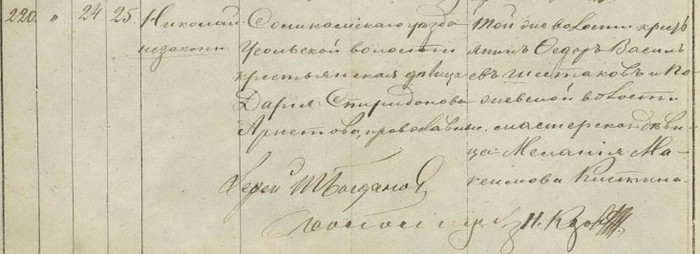 220. " 24 25
Николай
незаконн.
Соликамскаго уѣзда
Усольской волости
крестьянская дѣвица
Дарія Спиридонова
Аристова, православные.
Той же волости кресть
янинъ Ѳедоръ Василь
евъ Шестаковъ и
волости
мастерская дѣви
ца Меланія Ма
ксимова
Іерей Богданов
Н.